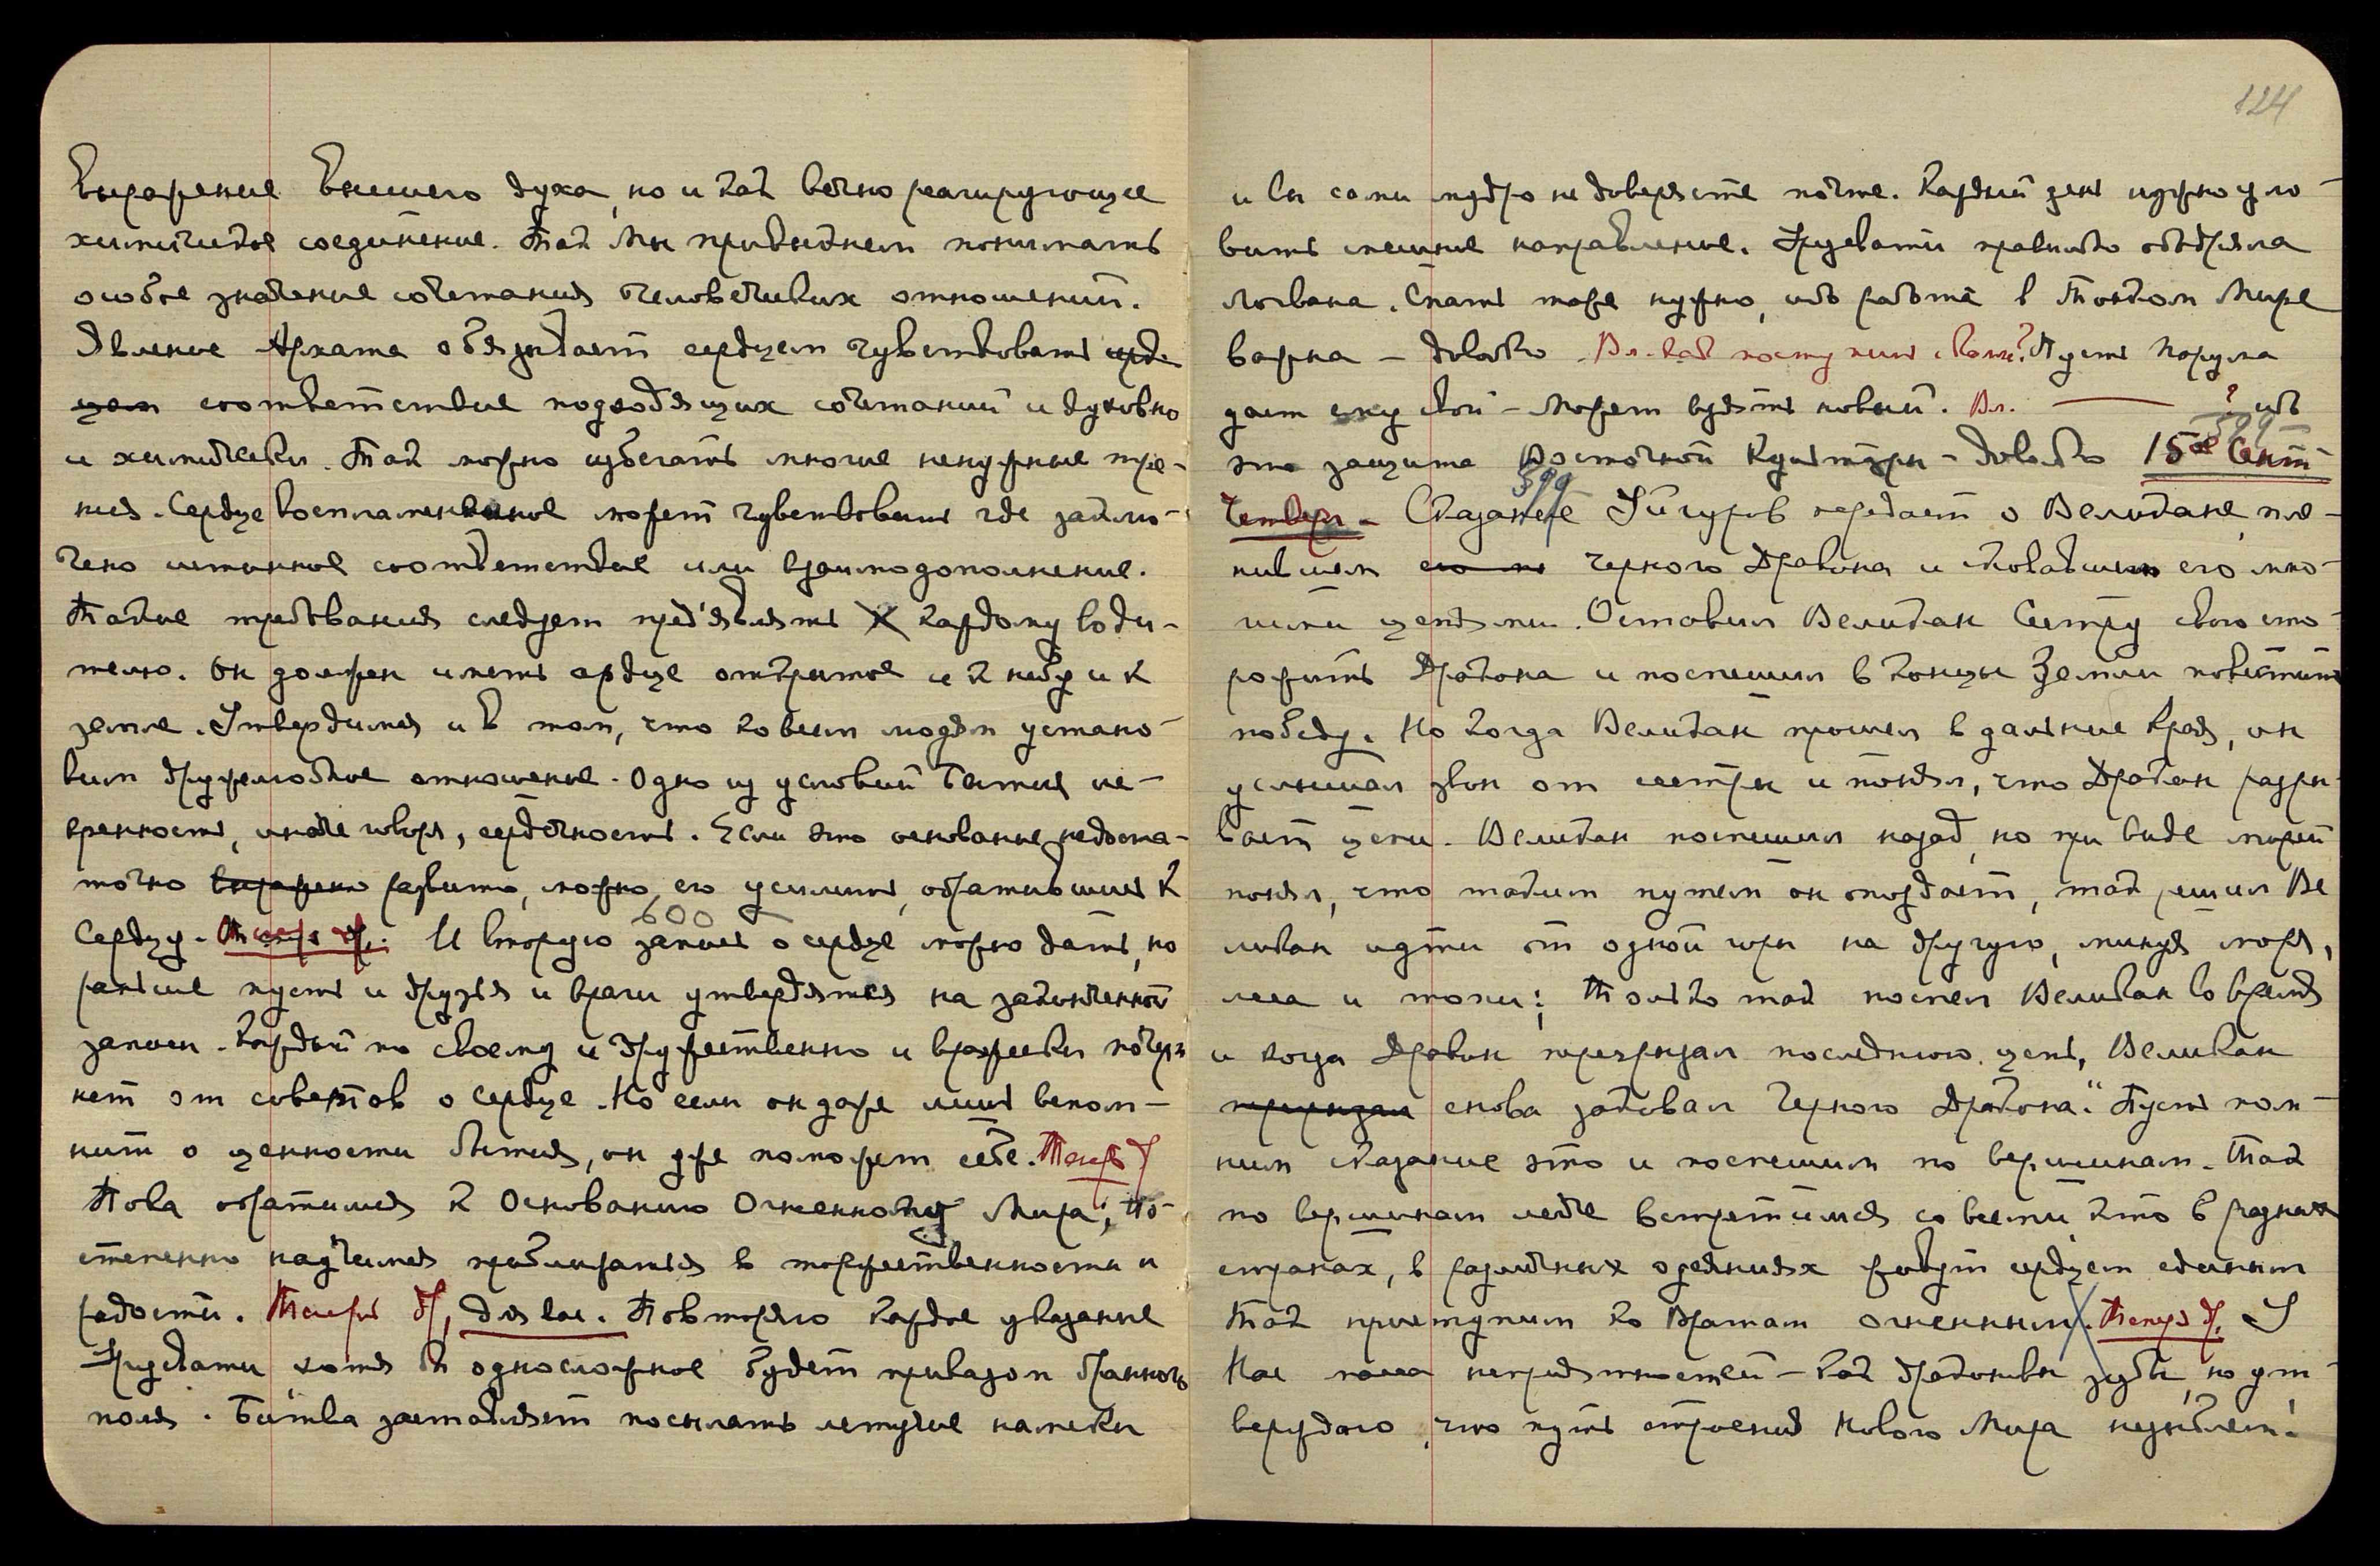 выражение высшего духа, но и как вечно реагирующее
химическое соединение. Так Мы привыкнем понимать
особое значение сочетания человеческих отношений.
Явление Архата обязывает сердцем чувствовать серд-
цем соответствие подходящих сочетаний и духовно
и химически. Так можно избегать многие ненужные тре-
ния. Сердце воспламененное может чувствовать где заклю-
чено истинное соответствие или взаимодополнение.
Такие требования следует пред'являть к каждому води-
телю. Он должен иметь сердце открытое и к небу и к
земле. Утвердимся и в том, что ко всем людям устано-
вим дружелюбное отношение. Одно из условий бытия ис-
кренность, иначе говоря, сердечность. Если это основание недоста-
точно выражено развито, можно его усилить, обратившись к
Сердцу. Теперь др. И вторую запись о сердце можно дать, но
600
раньше пусть и друзья и враги утвердятся на законченной
записи. Каждый по своему и дружественно и вражески почерп-
нет от советов о Сердце. Но если он даже лишь вспом-
нит о ценности бытия, он уже поможет себе. Теперь др
Пока обратимся к Основанию Огненному Мира; По-
степенно научимся приближаться в торжественности и
радости. Теперь др, для вас. Повторяю каждое указание
Урусвати, хотя бы односложное будет приказом бранного
поля. Битва заставляет посылать летучие намеки
124
и вы сами мудро не доверяете почте. Каждый день нужно уло-
вить спешные направления. Урусвати правильно ободряла
Логвана. Спать тоже нужно, ибо работа в Тонком Мире
важна – довольно. Вл. как поступить с ? Пусть Парума
дает ему свой – может взять новый. Вл. — ? ибо
это защита Восточной Культуры – довольно 15ое Сент
599
Четверг – Сказание Уйгуров передает о Великане, пле-
599
нившем его на черного Дракона и сковавшем его мно-
гими цепями. Оставил Великан Сестру свою сто-
рожить Дракона и поспешил в концы Земли повестить
победу. Но когда Великан прошел в дальние края, он
услышал звон от сестры и понял, что Дракон разры-
вает цепи. Великан поспешил назад, но при виде морей
понял, что таким путем он опоздает, так решил Ве
ликан идти от одной горы на другую, минуя моря,
леса и топи; Только так поспел Великан во время
и когда Дракон перегрызал последнюю цепь, Великан
перегрызал снова заковал Черного Дракона." Пусть пом-
ним сказание это и поспешим по вершинам. Так
по вершинам легче встретимся со всеми кто в разных
странах, в различных одеяниях живут сердцем единым
Так приступим ко Вратам огненным. Теперь др, У
Нас масса неприятностей – как драконовы зубы, но ут-
верждаю, что путь строения Нового Мира незыблем!